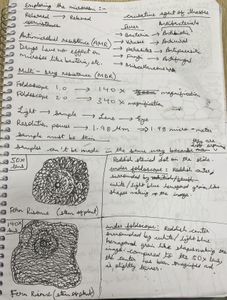 Exploring the microcosm :-
Causative agent of illnesses
Antimicrobials
→ Bacteria → Antibiotic
→ Viruses → Antiviral
→ Parasites → Antiparasitic
→ Fungi → Antifungal
→ Miscellaneous
Antimicrobial resistance (AMR)
Drugs have no effect on
Microbes like bacteria, etc.
Multi - Drug resistance (MDR)
Foldoscope 1.0 → 140X magnification
Foldoscope 2.0 → 340X magnification
→ Light → Sample → Lens → Eye
Resolution power → 1.98 Mm → 1.98 micro-meter
Sample must be thin
Samples can't be made in the same way because
50X
Reddish stained dot on the slide.
Under foldoscope: Reddish center
surrounded by
white/light blue hexagonal grain-like
shapes making up the image
Fern Risome (stem
140X
Under foldscope: Reddish center
surrounded by white/light blue
hexagonal grain like shapes making up the
image. Compared to the 50X lens
the center has been magnified and
is slightly
Fern Risome (stem